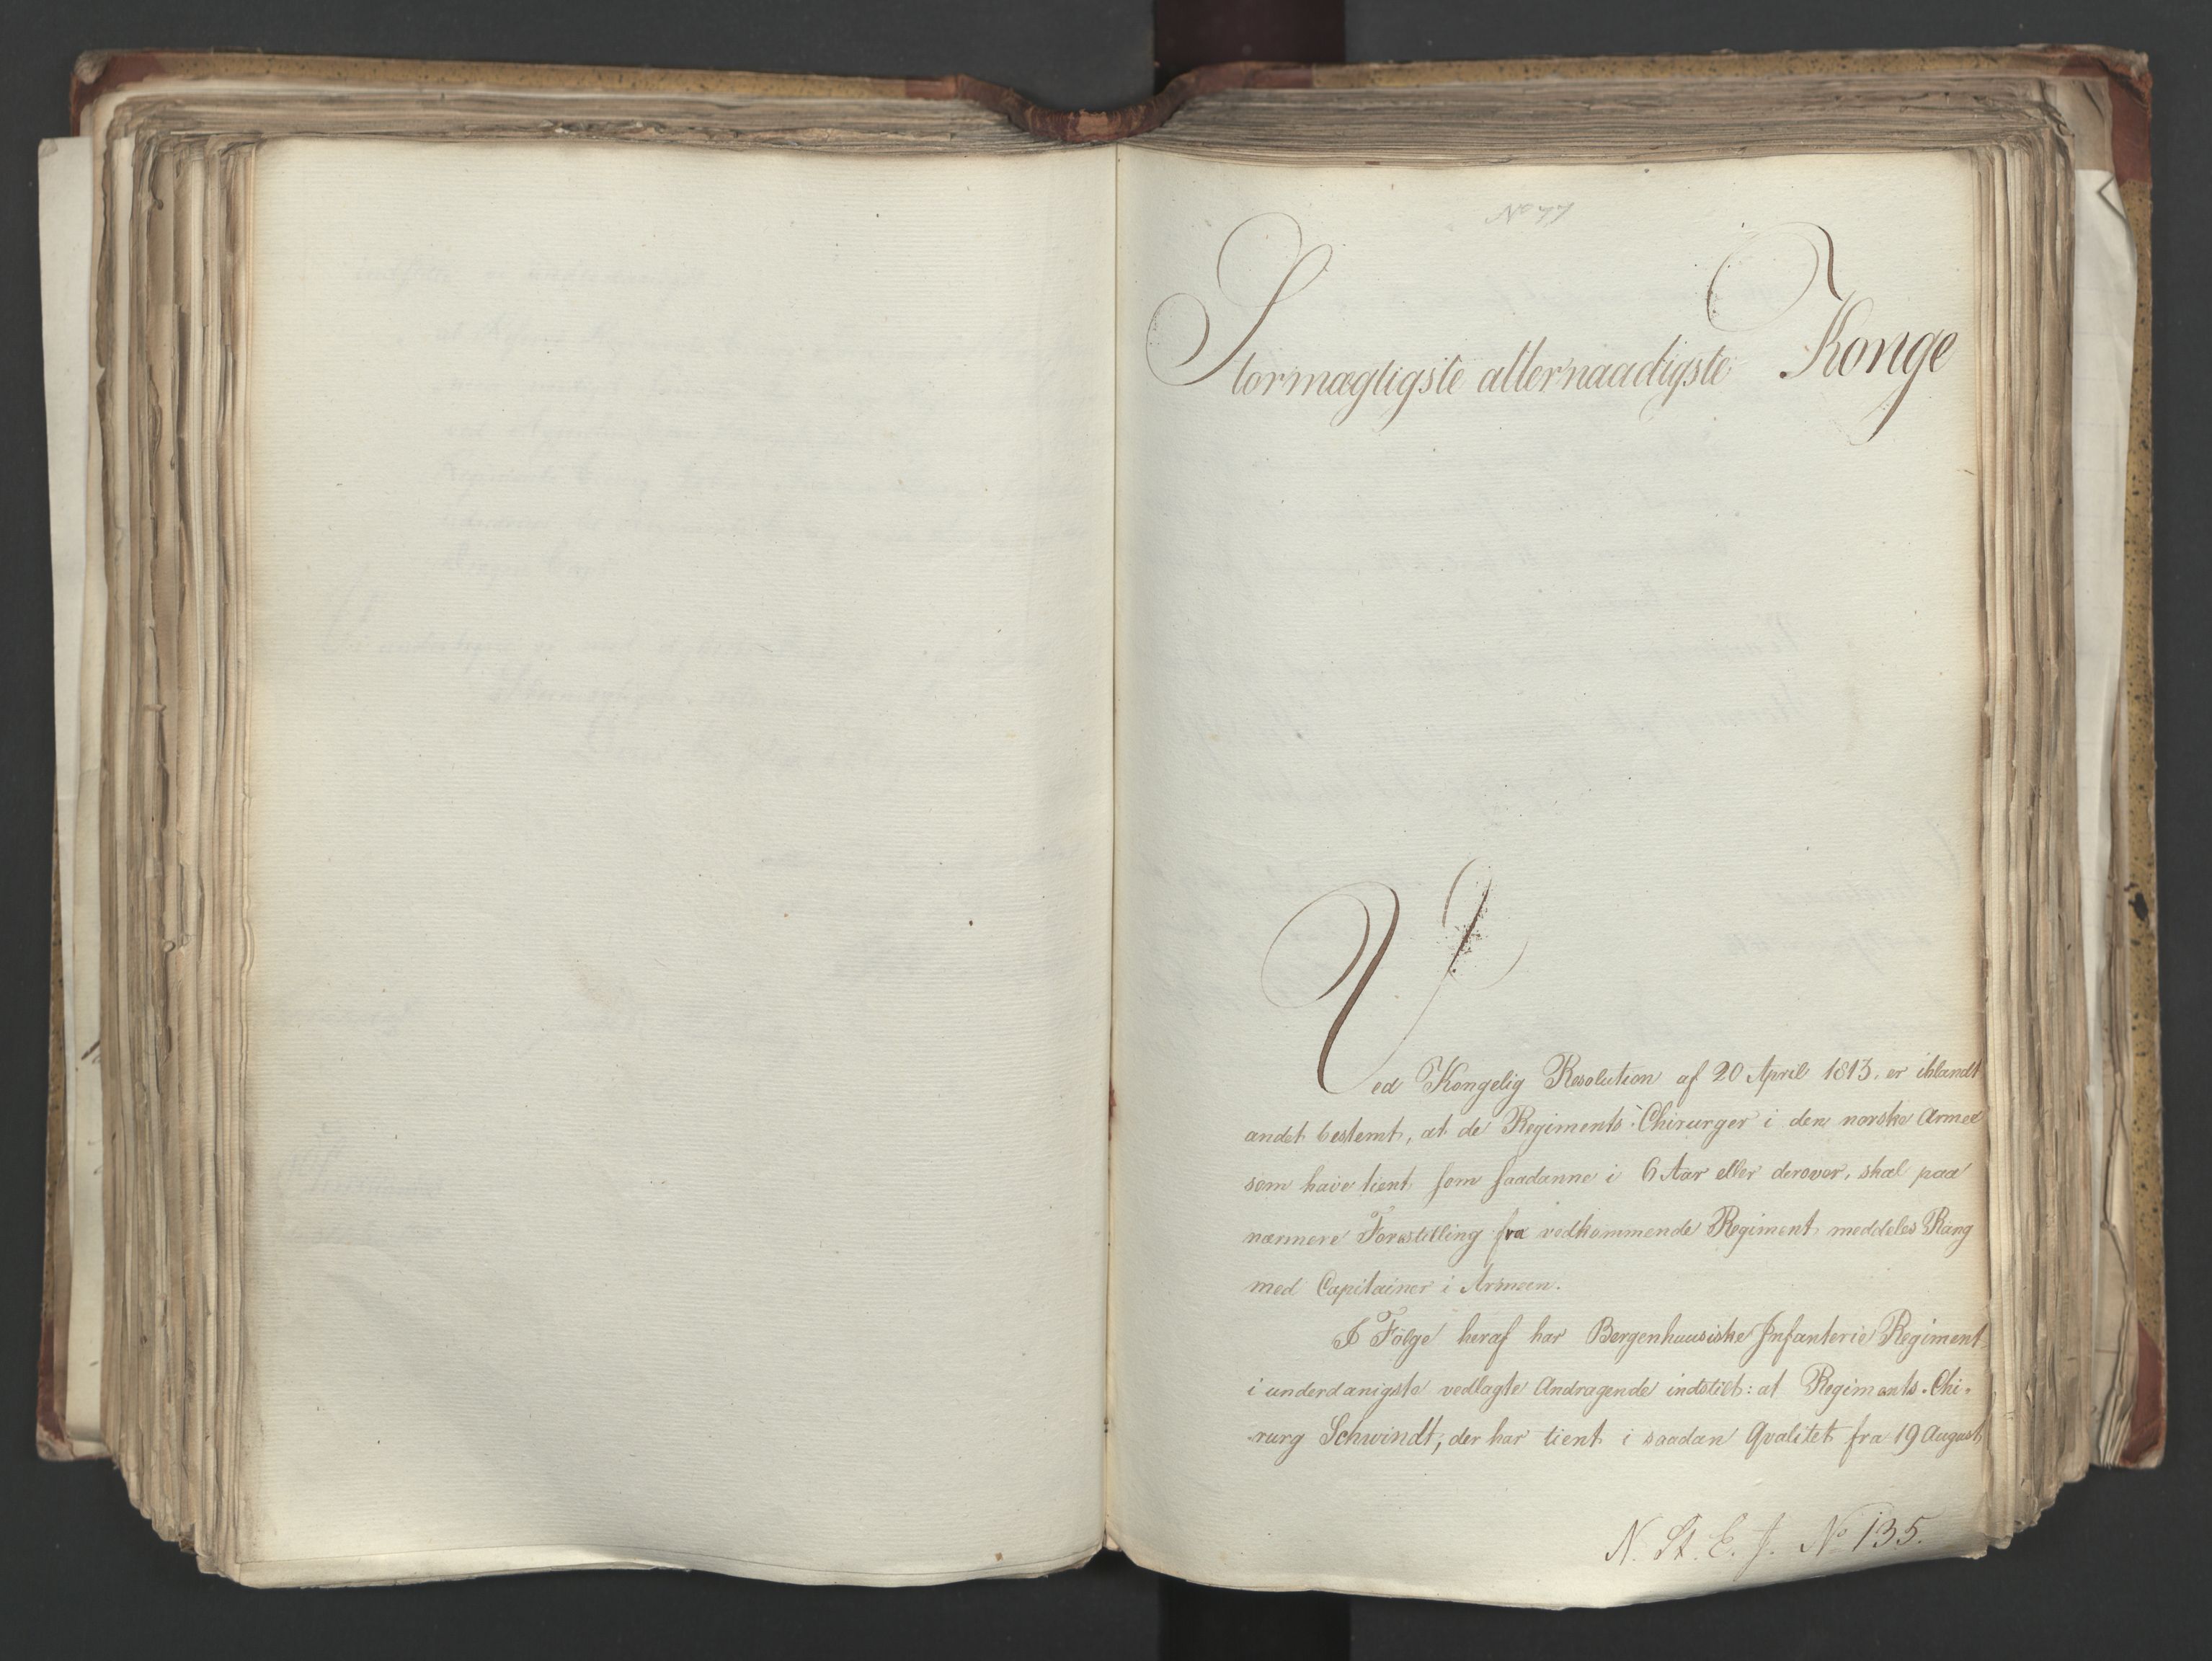 No 77
Stormægtigste allernaadigste Konge
Ved Kongelig Resolution af 20 April 1813, er iblandt
andet bestemt, at de Regiments-Chirurger i den norske Armee
som have tient som saadanne i 6 Aar eller derover, skal paa
nærmere Forestilling fra vedkommende Regiment meddeles Rang
med Capitainer i Armeen.
I Følge heraf har Bergenhuusiske Infanterie Regiment
i underdanigste vedlagte Andragende indstilt: at Regiments-Chi-
rurg Schwindt, der har tient i saadan Qvalitet fra 19 August
N. St. E. J. No 135.